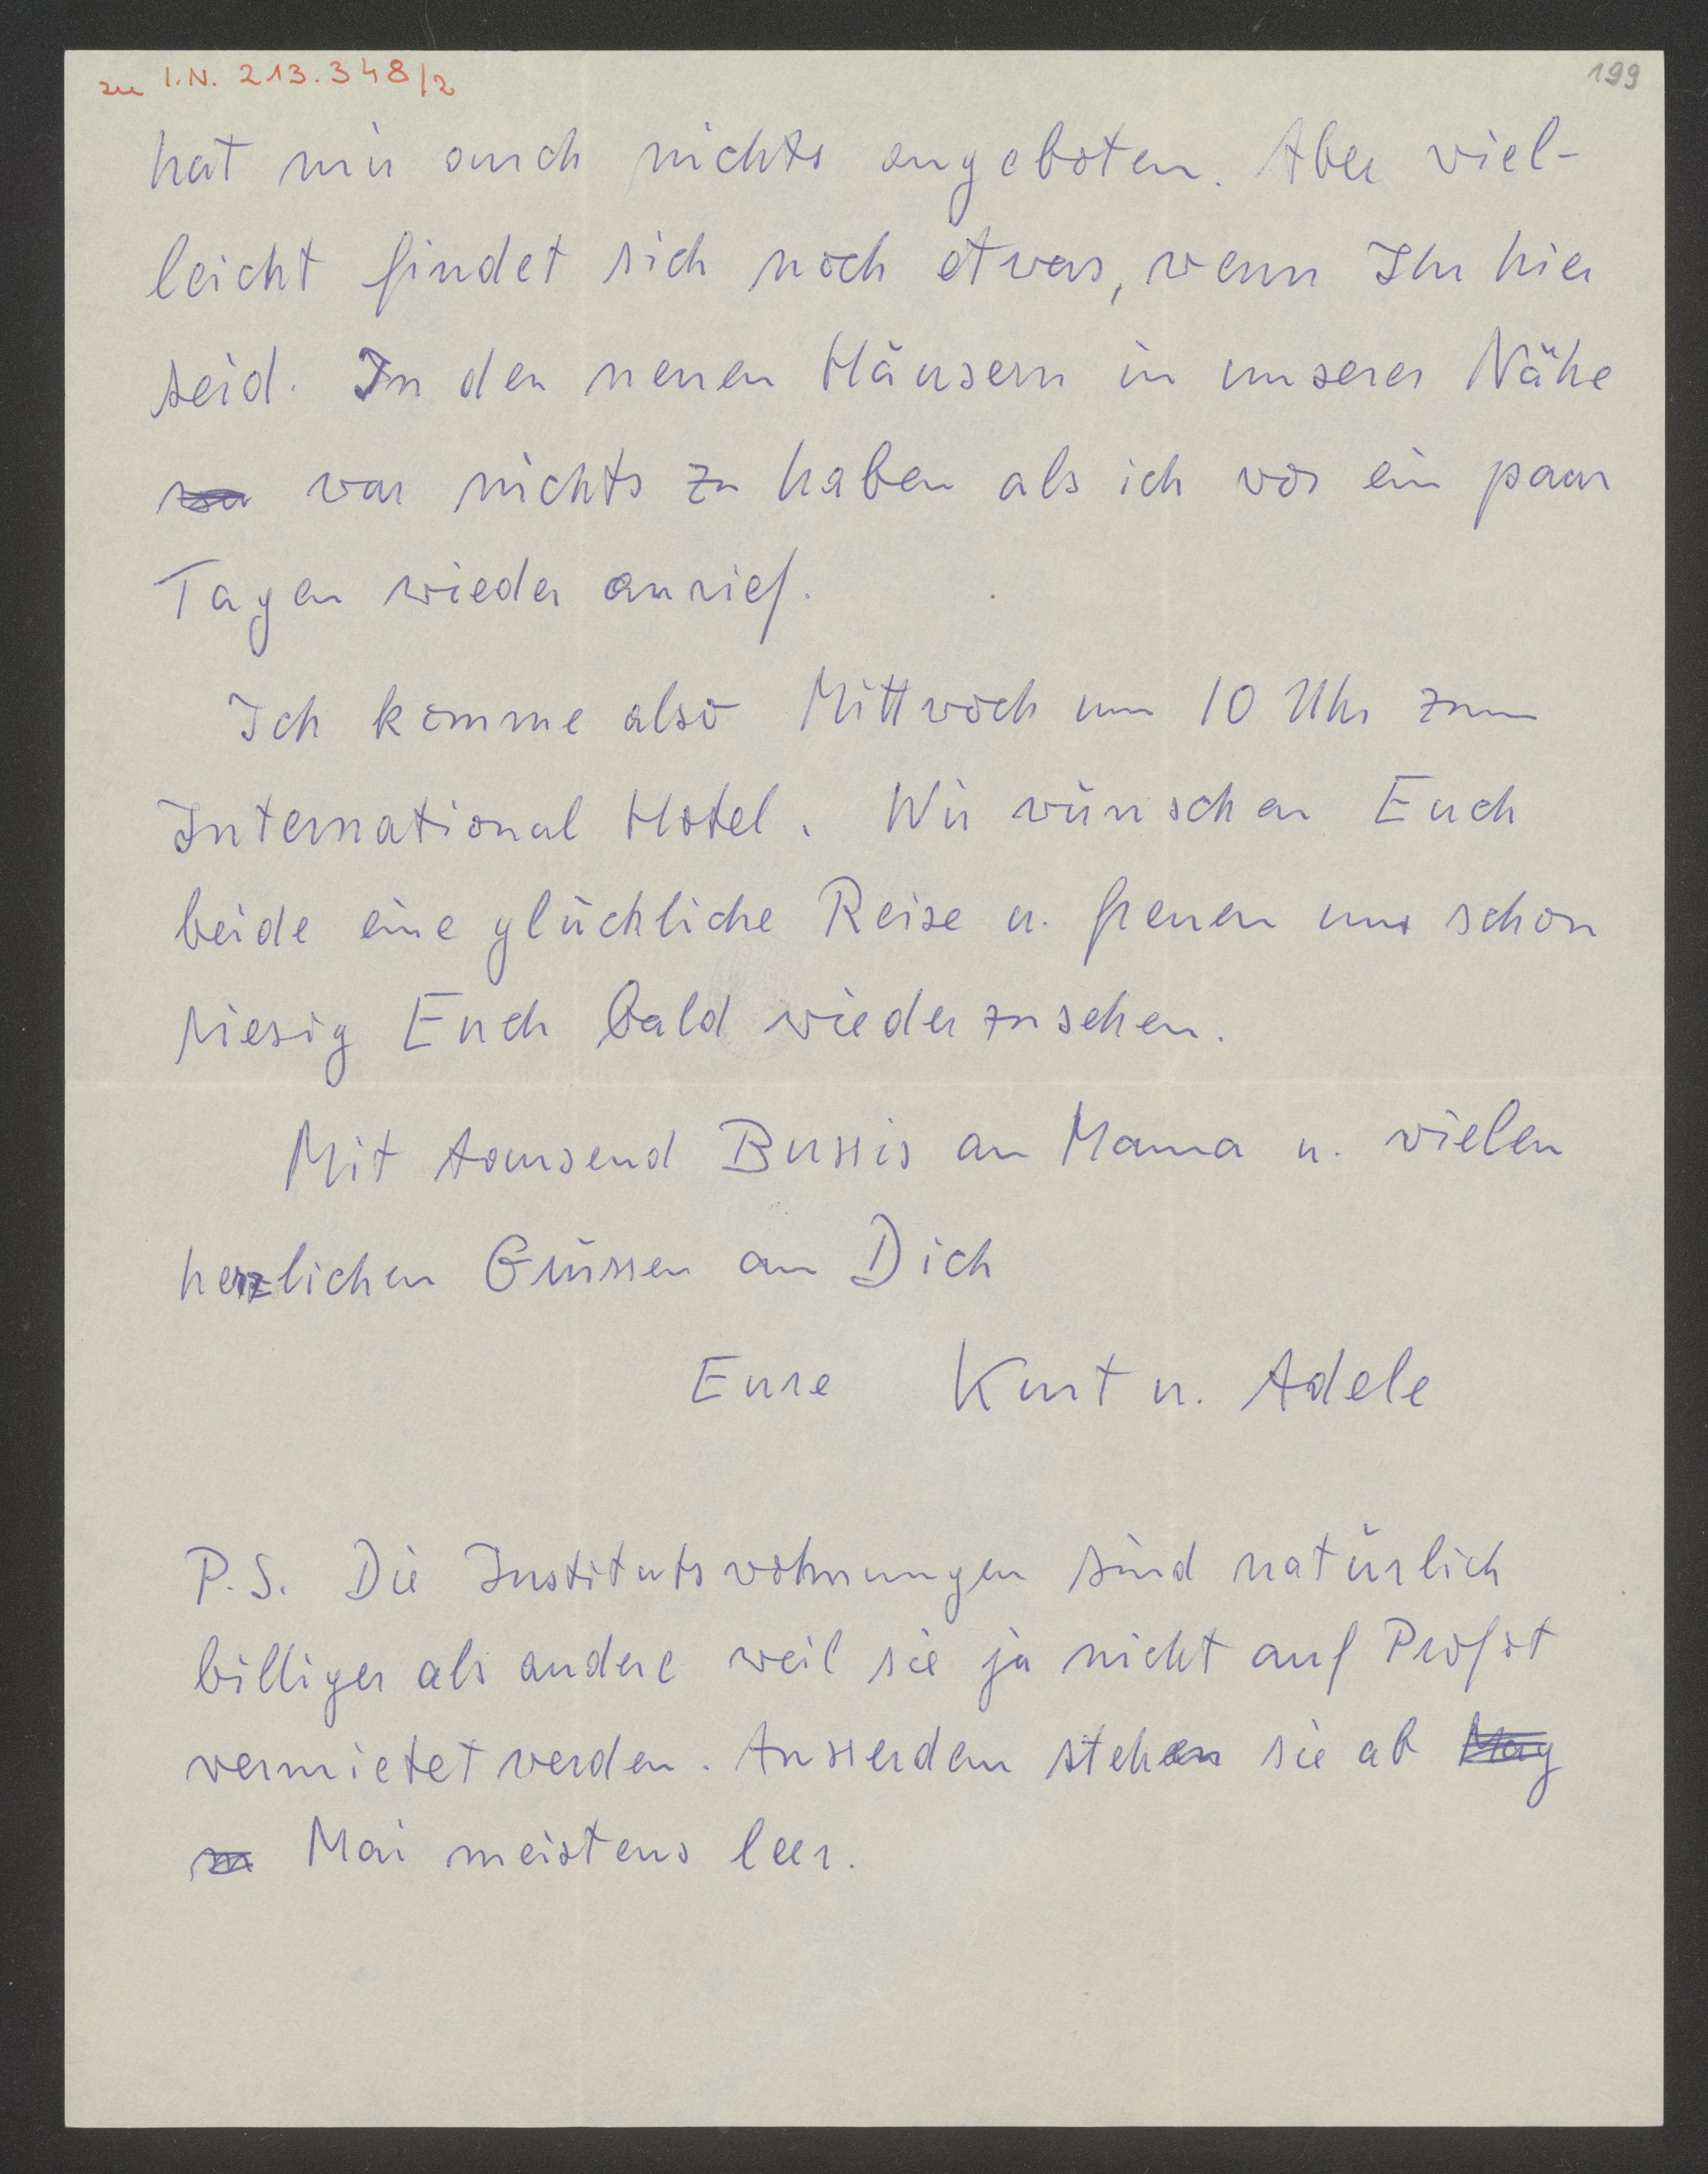 zu I.N. 213.348/2
199
hat mir auch nichts angeboten. Aber viel-
leicht findet sich noch etwas, wenn Ihr hier
seid. In den neuen Häusern in unserer Nähe
war nichts zu haben als ich vor ein paar
Tagen wieder anrief.
Ich komme also Mittwoch um 10 Uhr zum
International Hotel. Wir wünschen Euch
beide eine glückliche Reise u. freuen uns schon
riesig Euch bald wiederzusehen.
Mit tausend Bussis an Mama u. vielen
herzlichen Grüssen an Dich
Eure Kurt u. Adele
P.S. Die Institutswohnungen sind natürlich
billiger als andere weil sie ja nicht auf Profit
vermietet werden. Ausserdem stehen sie ab May
Mai meistens leer.